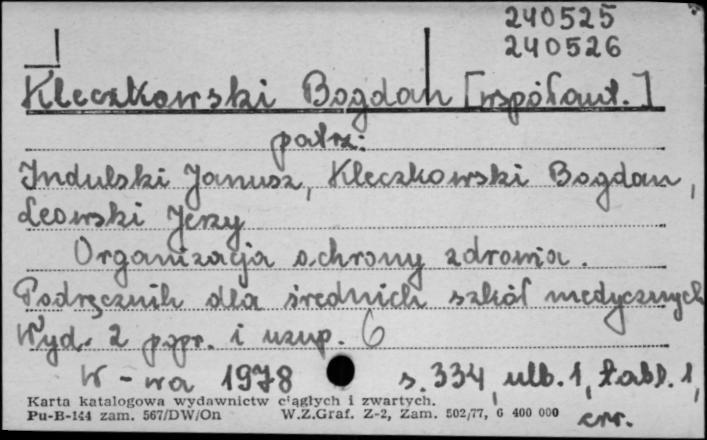 240525
240526
Kleczkowski Bogdan [współaut.]
patrz:
Indulski Janusz, Kleczkowski Bogdan,
Leowski Jerzy
Organizacja ochrony zdrowia.
Podręcznik dla średnich szkół medycznych
Wyd. 2 popr. i uzup. 6
W-wa 1978 s. 334, ulb. 1, tabl. 1,
err.
Karta katalogowa wydawnictw ciągłych i zwartych.
Pu-B-144 zam. 567/DW/On W.Z.Graf. Z-2, Zam. 502/77, 6 400 000